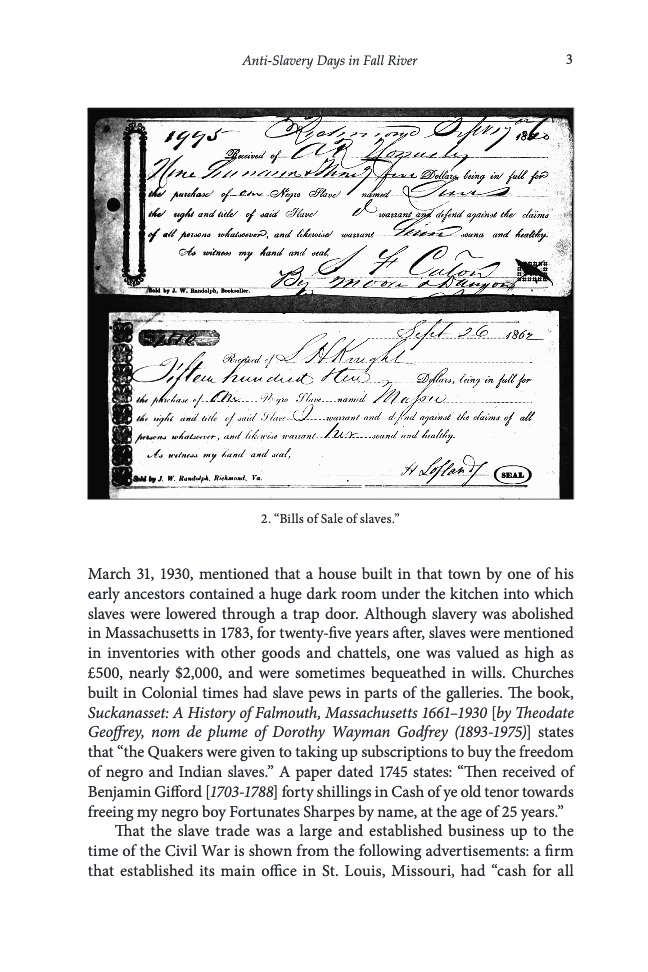 Anti-Slavery Days in Fall River 3
1995 Richmond Sept 17 1860
Received of
Nine Hundred & Ninety five Dollars, being in full for
the purchase of one Negro Slave named
the right and title of said Slave I warrant and defend against the claims
of all persons whatsoever, and likewise warrant him sound and healthy.
As witness my hand and seal,
By
Sold by J. W. Randolph, Bookseller.
Sept 26 1862
Received of S H Knight
Fifteen hundred & ten Dollars, being in full for
the purchase of One Negro Slave named
the right and title of said Slave I warrant and defend against the claims of all
persons whatsoever, and likewise warrant her sound and healthy.
As witness my hand and seal,
Sold by J. W. Randolph, Richmond, Va. H Lofland SEAL
2. “Bills of Sale of slaves.”
March 31, 1930, mentioned that a house built in that town by one of his
early ancestors contained a huge dark room under the kitchen into which
slaves were lowered through a trap door. Although slavery was abolished
in Massachusetts in 1783, for twenty-five years after, slaves were mentioned
in inventories with other goods and chattels, one was valued as high as
£500, nearly $2,000, and were sometimes bequeathed in wills. Churches
built in Colonial times had slave pews in parts of the galleries. The book,
Suckanasset: A History of Falmouth, Massachusetts 1661–1930 [by Theodate
Geoffrey, nom de plume of Dorothy Wayman Godfrey (1893-1975)] states
that “the Quakers were given to taking up subscriptions to buy the freedom
of negro and Indian slaves.” A paper dated 1745 states: “Then received of
Benjamin Gifford [1703-1788] forty shillings in Cash of ye old tenor towards
freeing my negro boy Fortunates Sharpes by name, at the age of 25 years.”
That the slave trade was a large and established business up to the
time of the Civil War is shown from the following advertisements: a firm
that established its main office in St. Louis, Missouri, had “cash for all